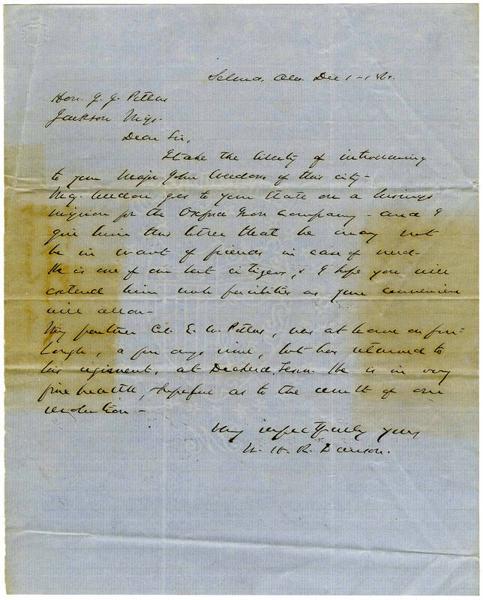 Selma, Ala. Dec 1 - 186
Hon. J. J. Pettus
Jackson Miss.
Dear Sir,
I take the liberty of introducing
to you Major John Weedon of this city -
Maj. Weedon goes to your State on a business
mission for the Oxford Iron Company - and I
give him this letter that he may not
be in want of friends in case of need -
He is one of our best citizens, & I hope you will
extend him such facilities as your convenience
will allow -
My partner Col. E. W. Pettus, was at home on fur-
lough, a few days since, but has returned to
his regiment, at Decherd, Tenn. He is in very
fine health, & hopeful as to the result of our
revolution -
Very respectfully yours
N. H. R. Dawson.